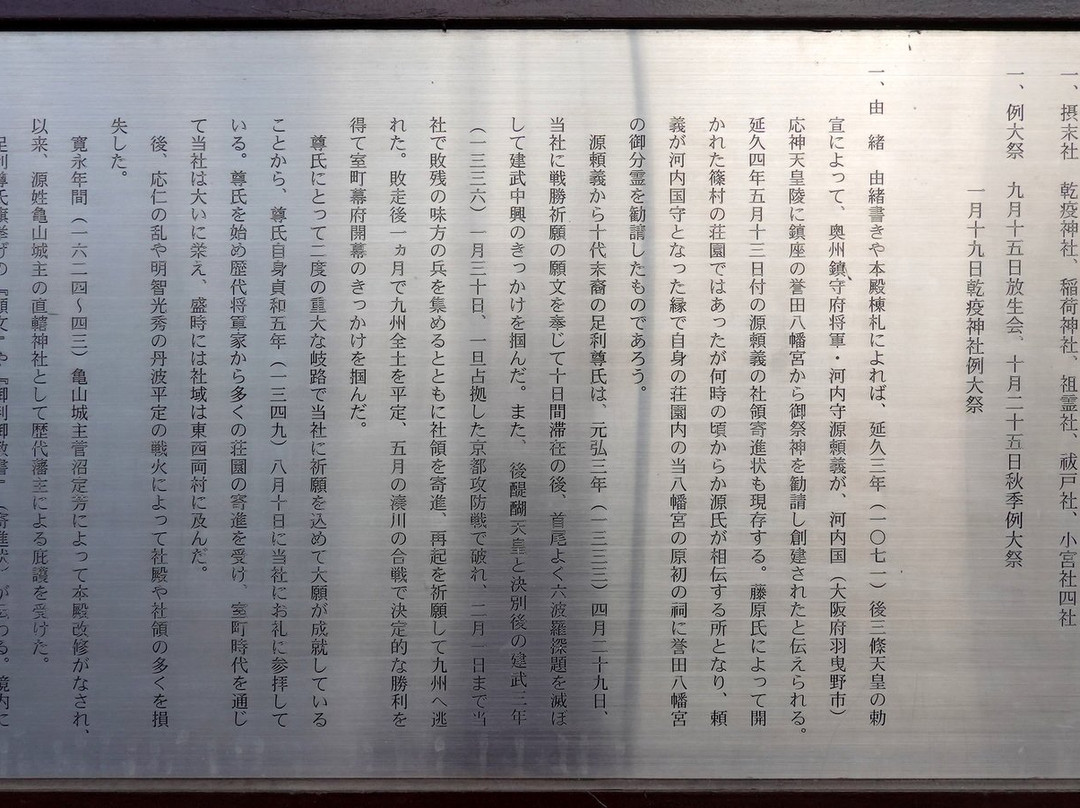 一、摂末社　乾疫神社、稲荷神社、祖霊社、祓戸社、小宮社四社
一、例大祭　九月十五日放生会、十月二十五日秋季例大祭
一月十九日乾疫神社例大祭
一、由　緒　由緒書きや本殿棟札によれば、延久三年（一〇七一）後三條天皇の勅
宣によって、奥州鎮守府将軍・河内守源頼義が、河内国（大阪府羽曳野市）
応神天皇陵に鎮座の誉田八幡宮から御祭神を勧請し創建されたと伝えられる。
延久四年五月十三日付の源頼義の社領寄進状も現存する。藤原氏によって開
かれた篠村の荘園ではあったが何時の頃からか源氏が相伝する所となり、頼
義が河内国守となった縁で自身の荘園内の当八幡宮の原初の祠に誉田八幡宮
の御分霊を勧請したものであろう。
源頼義から十代末裔の足利尊氏は、元弘三年（一三三三）四月二十九日、
当社に戦勝祈願の願文を奉じて十日間滞在の後、首尾よく六波羅探題を滅ぼ
して建武中興のきっかけを掴んだ。また、後醍醐天皇と決別後の建武三年
（一三三六）一月三十日、一旦占拠した京都攻防戦で破れ、二月一日まで当
社で敗残の味方の兵を集めるとともに社領を寄進、再起を祈願して九州へ逃
れた。敗走後一ヵ月で九州全土を平定、五月の湊川の合戦で決定的な勝利を
得て室町幕府開幕のきっかけを掴んだ。
尊氏にとって二度の重大な岐路で当社に祈願を込めて大願が成就している
ことから、尊氏自身貞和五年（一三四九）八月十日に当社にお礼に参拝して
いる。尊氏を始め歴代将軍家から多くの荘園の寄進を受け、室町時代を通じ
て当社は大いに栄え、盛時には社域は東西両村に及んだ。
後、応仁の乱や明智光秀の丹波平定の戦火によって社殿や社領の多くを損
失した。
寛永年間（一六二四～四三）亀山城主菅沼定芳によって本殿改修がなされ、
以来、源姓亀山城主の直轄神社として歴代藩主による庇護を受けた。
足利尊氏旗挙げの『願文』や『御判御教書』（寄進状）が伝わる。境内に